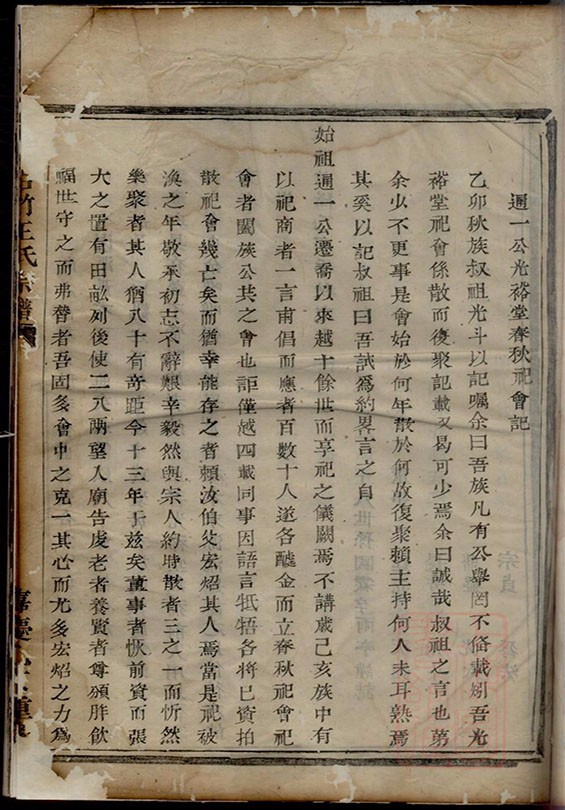 通一公光裕堂春秋祀會記
乙卯秋族叔祖光斗以記囑余曰吾族凡有公舉罔不俻載矧吾光
裕堂祀會係散而復聚記載又曷可少焉余曰誠哉叔祖之言也第
余少不更事是會始於何年散於何故復聚賴主持何人未耳熟焉
其奚以記叔祖曰吾試爲約畧言之自
始祖通一公遷喬以來越十餘世而享祀之儀闕焉不講歲己亥族中有
以祀商者一言甫倡而應者百數十人遂各醵金而立春秋祀會祀
會者闔族公共之會也詎僅越四載同事因語言牴牾各將已資拍
散祀會幾亡矣而猶幸能存之者賴汝伯父宏炤其人焉當是祀被
渙之年敬承初志不辭艱辛毅然與宗人約時散者三之一而忻然
樂聚者其人猶八十有奇距今十三年于兹矣董事者恢前資而張
大之置有田畝列後使二八兩望入廟告虔老者養賢者尊頒胙飲
福世守之而弗替者吾固多會中之克一其心而尤多宏炤之力爲
竹王氏宗譜
宗貞